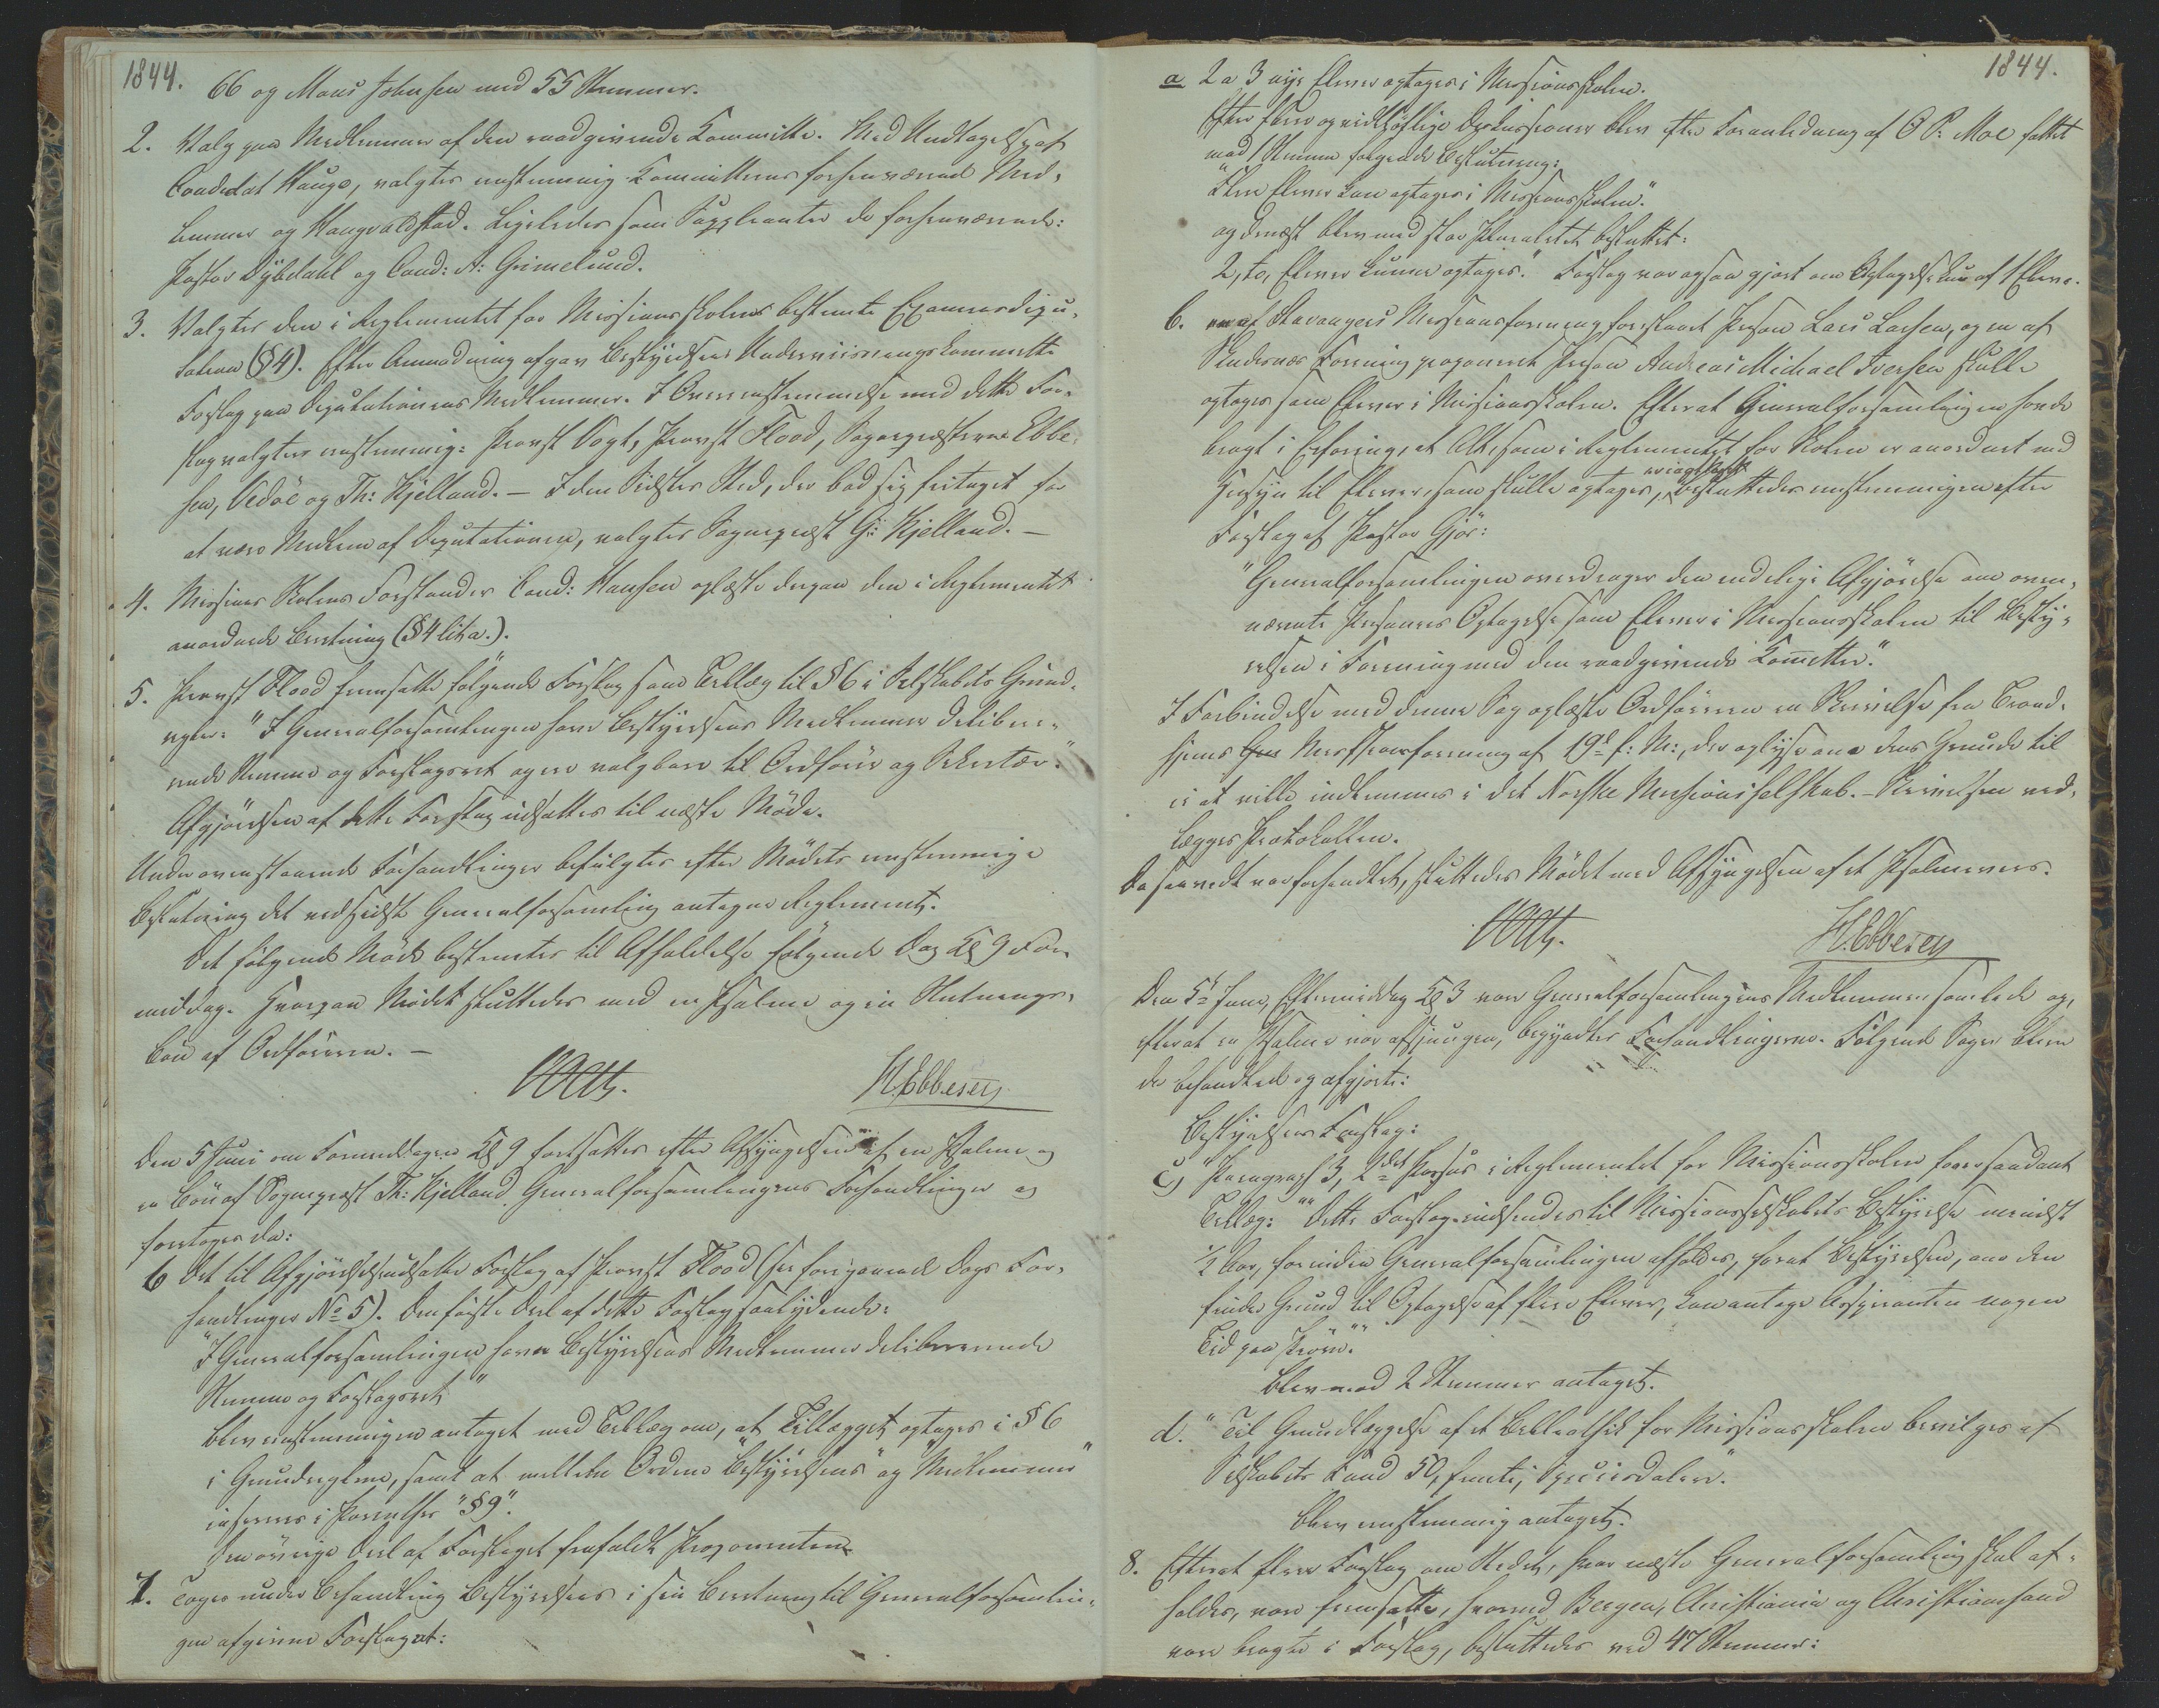 1844.
66 og Mons Johnsen med 55 Stemmer.
2. Valg paa Medlemmer af den raadgivende Kommitte. Med Undtagelse af
Candidat Hauge, valgtes enstemmig Kommitteens forhenværende Med-
lemmer og Haugvaldstad. Ligeledes som Suppleanter de forhenværende:
Pastor Dybdahl og Cand: A: Grimelund.
3. Valgtes den i Reglementet for Missionsskolens bestemte Examensdepu-
tation (§4). Efter Anmodning afgav Bestyrelsens Underviisningskommitte
Forslag paa Deputationens Medlemmer. I Overensstemmelse med dette For-
slag valgtes enstemmig: Provst Vogt, Provst Flood, Sognepræsterne Ebbe-
sen, Vedöe og Th: Kjelland. – I den Sidstes Sted, der bad sig fritaget for
at være Medlem af Deputationen, valgtes Sognepræst G: Kjelland. –
4. Missions Skolens Forstander Cand: Hansen oplæste derpaa den i Reglementet
anordnede Beretning (§4 lit a.).
5. Provst Flood fremsatte følgende Forslag som Tillæg til §6 i Selskabets Grund-
regler: "I Generalforsamlingen have Bestyrelsens Medlemmer delibere-
rende Stemme og Forslagsret og ere valgbare til Ordfører og Sekretær."
Afgjörelsen af dette Forslag udsattes til næste Møde.
Under ovenstaaende Forhandlinger befulgtes efter Mødets enstemmige
Beslutning det ved sidste Generalforsamling antagne Reglement.
Det følgende Møde bestemtes til Afholdelse følgende Dag Kl 9 For-
middag. Hvorpaa Mødet sluttedes med en Psalme og en Slutnings-
bön af Ordføreren. –
H. Ebbesen
Den 5 Juni om Formiddagen Kl 9 fortsattes efter Afsyngelsen af en Psalme og
en Bön af Sognepræst Th: Kjelland Generalforsamlingens Forhandlinger og
foretoges da:
6 Det til Afgjörelse udsatte Forslag af Provst Flood (see foregaaende Dags For-
handlinger No 5). Den første Deel af dette Forslag saalydende:
"I Generalforsamlingen have Bestyrelsens Medlemmer delibererende
Stemme og Forslagsret"
blev enstemmigen antaget med Tillæg om, at Tillægget optages i §6
i Grundreglerne, samt at mellem Ordene "Bestyrelsens" og "Medlemmer"
inføres i Parenthes "§9".
Den øvrige Deel af Forslaget frafaldt Proponenten
7. Toges under Behandling Bestyrelsens i sin Beretning til Generalforsamlin-
gen afgivne Forslag at:
1844.
a 2 a 3 nye Elever optages i Missionsskolen.
Efter flere og vidtløftige Diskussioner blev efter Foranledning af O P: Moe fattet
mod 1 Stemme følgende Beslutning:
"Flere Elever kan optages i Missionsskolen."
og dernæst blev med stor Pluralitet besluttet:
2, to, Elever kunne optages." Forslag var ogsaa gjort om Optagelse kun af 1 Elev.
b. en af Stavangers Missionsforening foreslaaet Person Lars Larsen, og en af
Skudenæs Forening proponeret Person Andreas Michael Iversen skulle
optages som Elever i Missionsskolen. Efterat Generalforsamlingen havde
bragt i Erfaring, at Alt, som i Reglementet for Skolen er anordnet med
Hensyn til Elever, som skulle optages, var iagttaget besluttedes enstemmigen efter
Forslag af Pastor Gjör:
"Generalforsamlingen overdrager den endelige Afgjörelse om oven-
nævnte Personers Optagelse som Elever i Missionsskolen til Besty-
relsen i Forening med den raadgivende Komitte."
I Forbindelse med denne Sag oplæste Ordføreren en Skrivelse fra Trond-
hjems Missionsforening af 19d f: M:, der oplyse om dens Grunde til
ei at ville indlemmes i det Norske Missionsselskab. – Skrivelsen ved-
lægges Protokollen.
Da saavidt var forhandlet, sluttedes Mødet med Afsyngelsen af et Psalmevers.
H. Ebbesen
Den 5te Juni, Eftermiddag Kl 3 vare Generalforsamlingens Medlemmer samlede og,
efterat en Psalme var afsjungen, begyndtes Forhandlingerne. Følgende Sager bleve
da behandlede og afgjorte:
Bestyrelsens Forslag:
c) "Paragraph 3, 2det Passus i Reglementet for Missionsskolen faaer saadant
Tillæg: ""Dette Forslag indsendes til Missionsselskabets Bestyrelse mindst
1/2 Aar, forinden Generalforsamlingen afholdes, forat Bestyrelsen, om den
finder Grund til Optagelse af flere Elever, kan antage Aspiranten nogen
Tid paa Prøve.""
blev mod 2 Stemmer antaget.
d. "Til Grundlæggelse af et Bibliothek for Missionsskolen bevilges af
Selskabets Fond 50, femti, Speciesdaler."
blev enstemmig antaget.
8. Efterat flere Forslag om Stedet, hvor næste Generalforsamling skal af-
holdes, vare fremsatte, hvorved Bergen, Christiania og Christianssand
vare bragte i Forslag, besluttedes med 47 Stemmer: